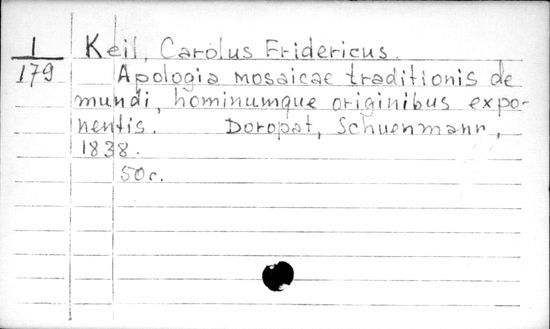 1
179
Keil, Carolus Fridericus.
Apologia mosaicae traditionis de
mundi, hominumque originibus expo-
nentis. Doropat, Schuenmann,
1838.
50 c.